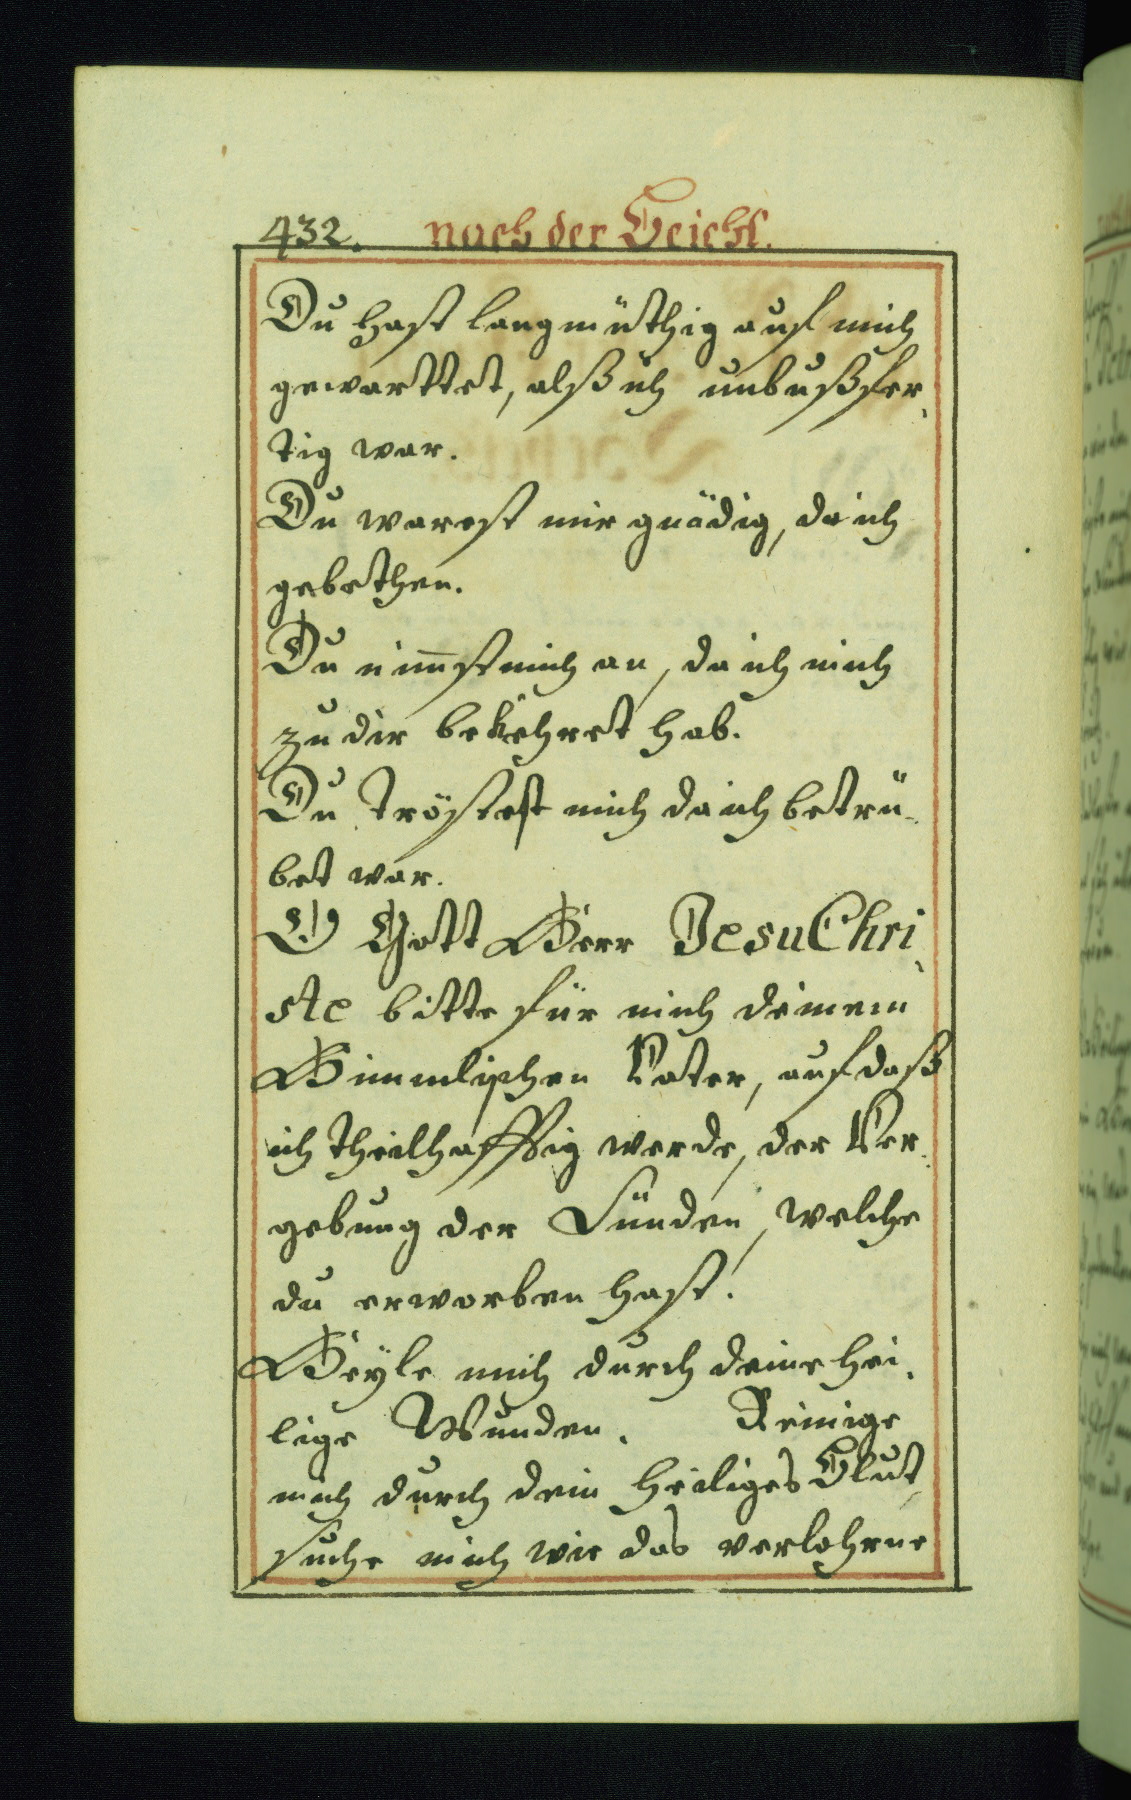 432. nach der Beicht.
Du hast langmüthig auf mich
gewarttet, alß ich unbußfer,
tig war.
Du warest mir gnädig, da ich
gebethen.
Du nim̅st mich an, da ich mich
zu dir bekehret hab.
Du tröstest mich da ich betrü-
bet war.
O Gott Herr Jesu Chri,
ste bitte für mich deinem
Himmlischen Vater, auf daß
ich theilhafftig werde, der Ver,
gebung der Sünden, welche
du erworben hast.
Heyle mich durch deine hei,
lige Wunden. Reinige
mich durch dein heiliges Blut
suche mich wie das verlohrne